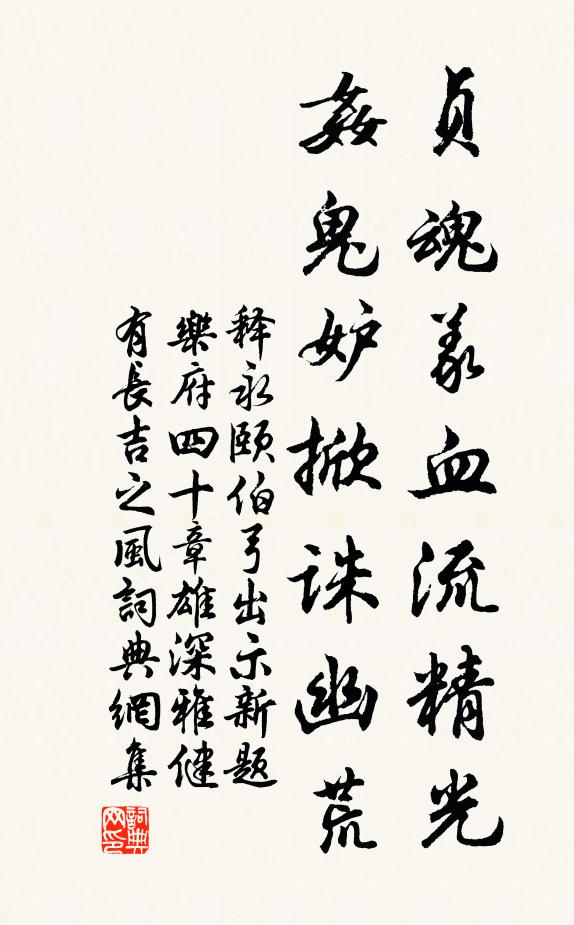 貞魂義血流精光
姦鬼妒掀誅幽荒
释永颐伯弓出示新题
樂府四十章雄深雅健
有長吉之風詞典網集
詞典网印